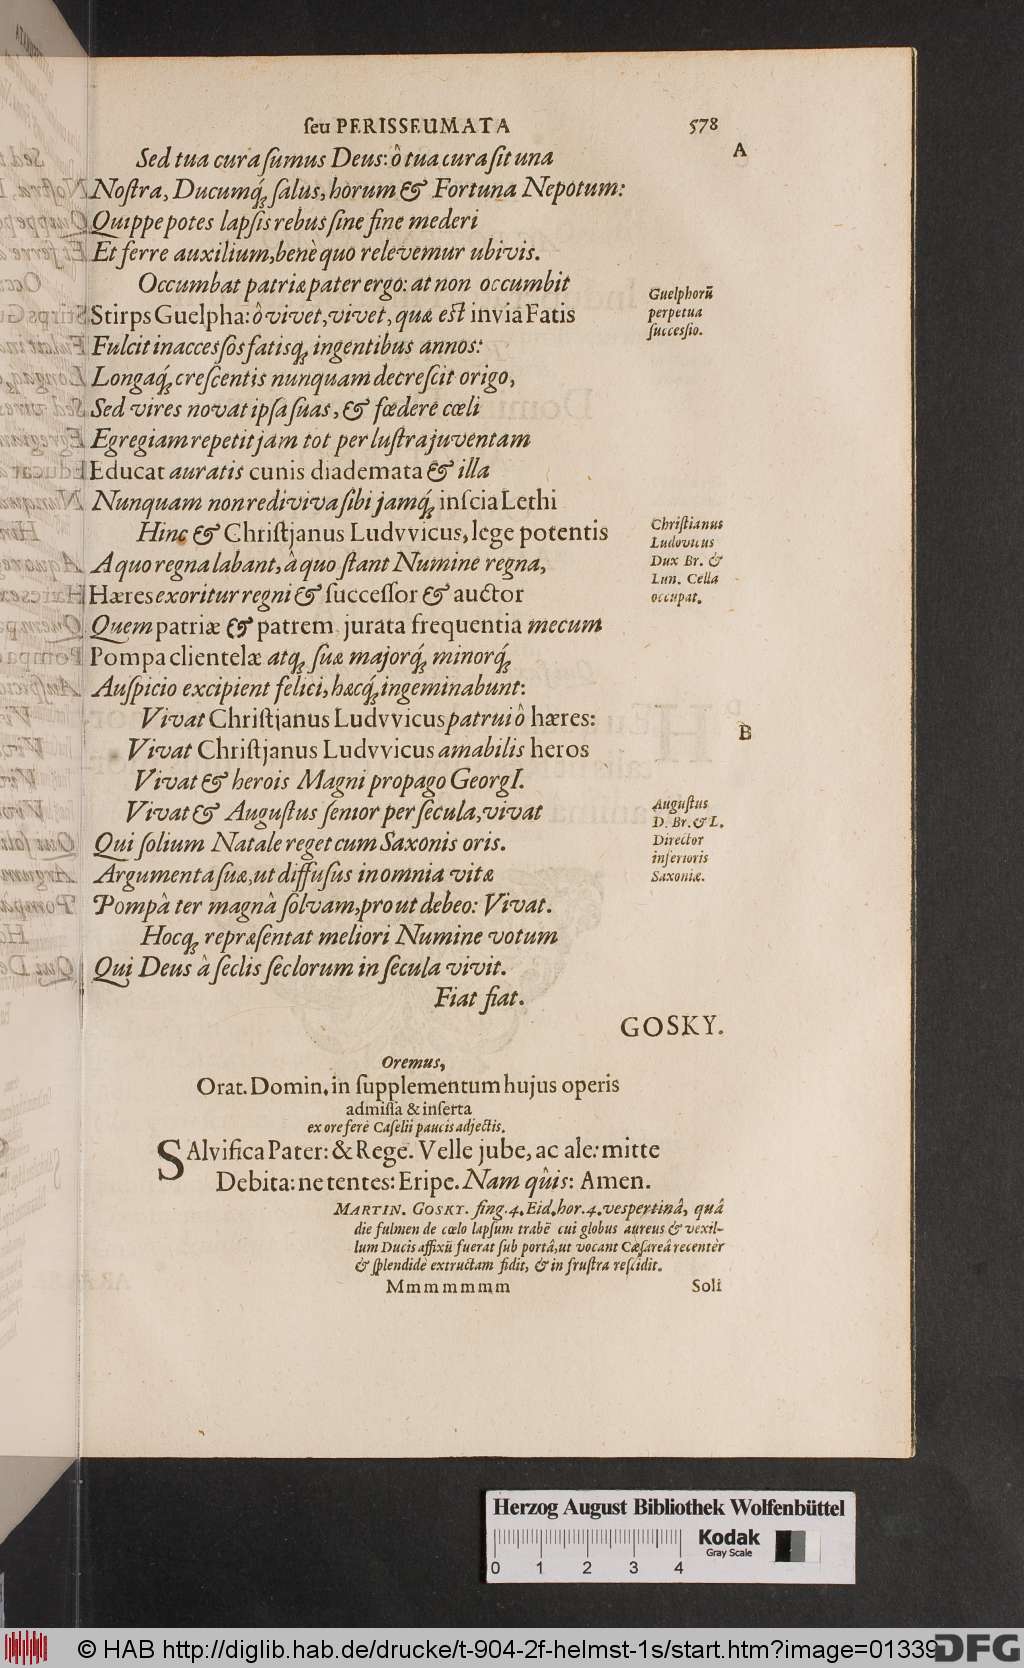 seu PERISSEUMATA 578
A
Sed tua cura sumus Deus: ô tua cura sit una
Nostra, Ducumq́ꝫ salus, horum & Fortuna Nepotum:
Quippe potes lapsis rebus sine fine mederi
Et ferre auxilium, benè quo relevemur ubivis.
Occumbat patriæ pater ergo: at non occumbit
Stirps Guelpha: ô vivet, vivet, quæ est invia Fatis
Guelphorū
perpetua
successio.
Fulcit inaccessos fatisqꝫ ingentibus annos:
Longaq́ꝫ crescentis nunquam decrescit origo,
Sed vires novat ipsa suas, & fœdere cœli
Egregiam repetit jam tot per lustra juventam
Educat auratis cunis diademata & illa
Nunquam non rediviva sibi jamq́ꝫ inscia Lethi
Hinc & Christjanus Ludvvicus, lege potentis
A quo regna labant, à quo stant Numine regna,
Hæres exoritur regni & successor & auctor
Christianus
Ludovicus
Dux Br. &
Lun. Cella
occupat.
Quem patriæ & patrem jurata frequentia mecum
Pompa clientelæ atqꝫ suæ majorq́ꝫ minorq́ꝫ
Auspicio excipient felici, hæcq́ꝫ ingeminabunt:
Vivat Christjanus Ludvvicus patrui ô hæres:
B
Vivat Christjanus Ludvvicus amabilis heros
Vivat & herois Magni propago GeorgI.
Vivat & Augustus senior per secula, vivat
Qui solium Natale reget cum Saxonis oris.
Augustus
D. Br. & L.
Director
inferioris
Saxoniæ.
Argumenta suæ, ut diffusus in omnia vitæ
Pompâ ter magnâ solvam, prout debeo: Vivat.
Hocqꝫ repræsentat meliori Numine votum
Qui Deus à seclis seclorum in secula vivit.
Fiat fiat.
GOSKY.
Oremus,
Orat. Domin. in supplementum hujus operis
admissa & inserta
ex ore ferè Caselii paucis adjectis.
SAlvifica Pater: & Rege. Velle jube, ac ale: mitte
Debita: ne tentes: Eripe. Nam qûis: Amen.
MARTIN. GOSKY. fing. 4. Eid. hor. 4. vespertinâ, quâ
die fulmen de cœlo lapsum trabē cui globus aureus & vexil-
lum Ducis affixū fuerat sub portâ, ut vocant Cæsareâ recentèr
& splendidè extructam fidit, & in frustra rescidit.
Mmmmmmm Soli
Herzog August Bibliothek Wolfenbüttel
Kodak
Gray Scale
0 1 2 3 4
© HAB http://diglib.hab.de/drucke/t-904-2f-helmst-1s/start.htm?image=01339
DFG